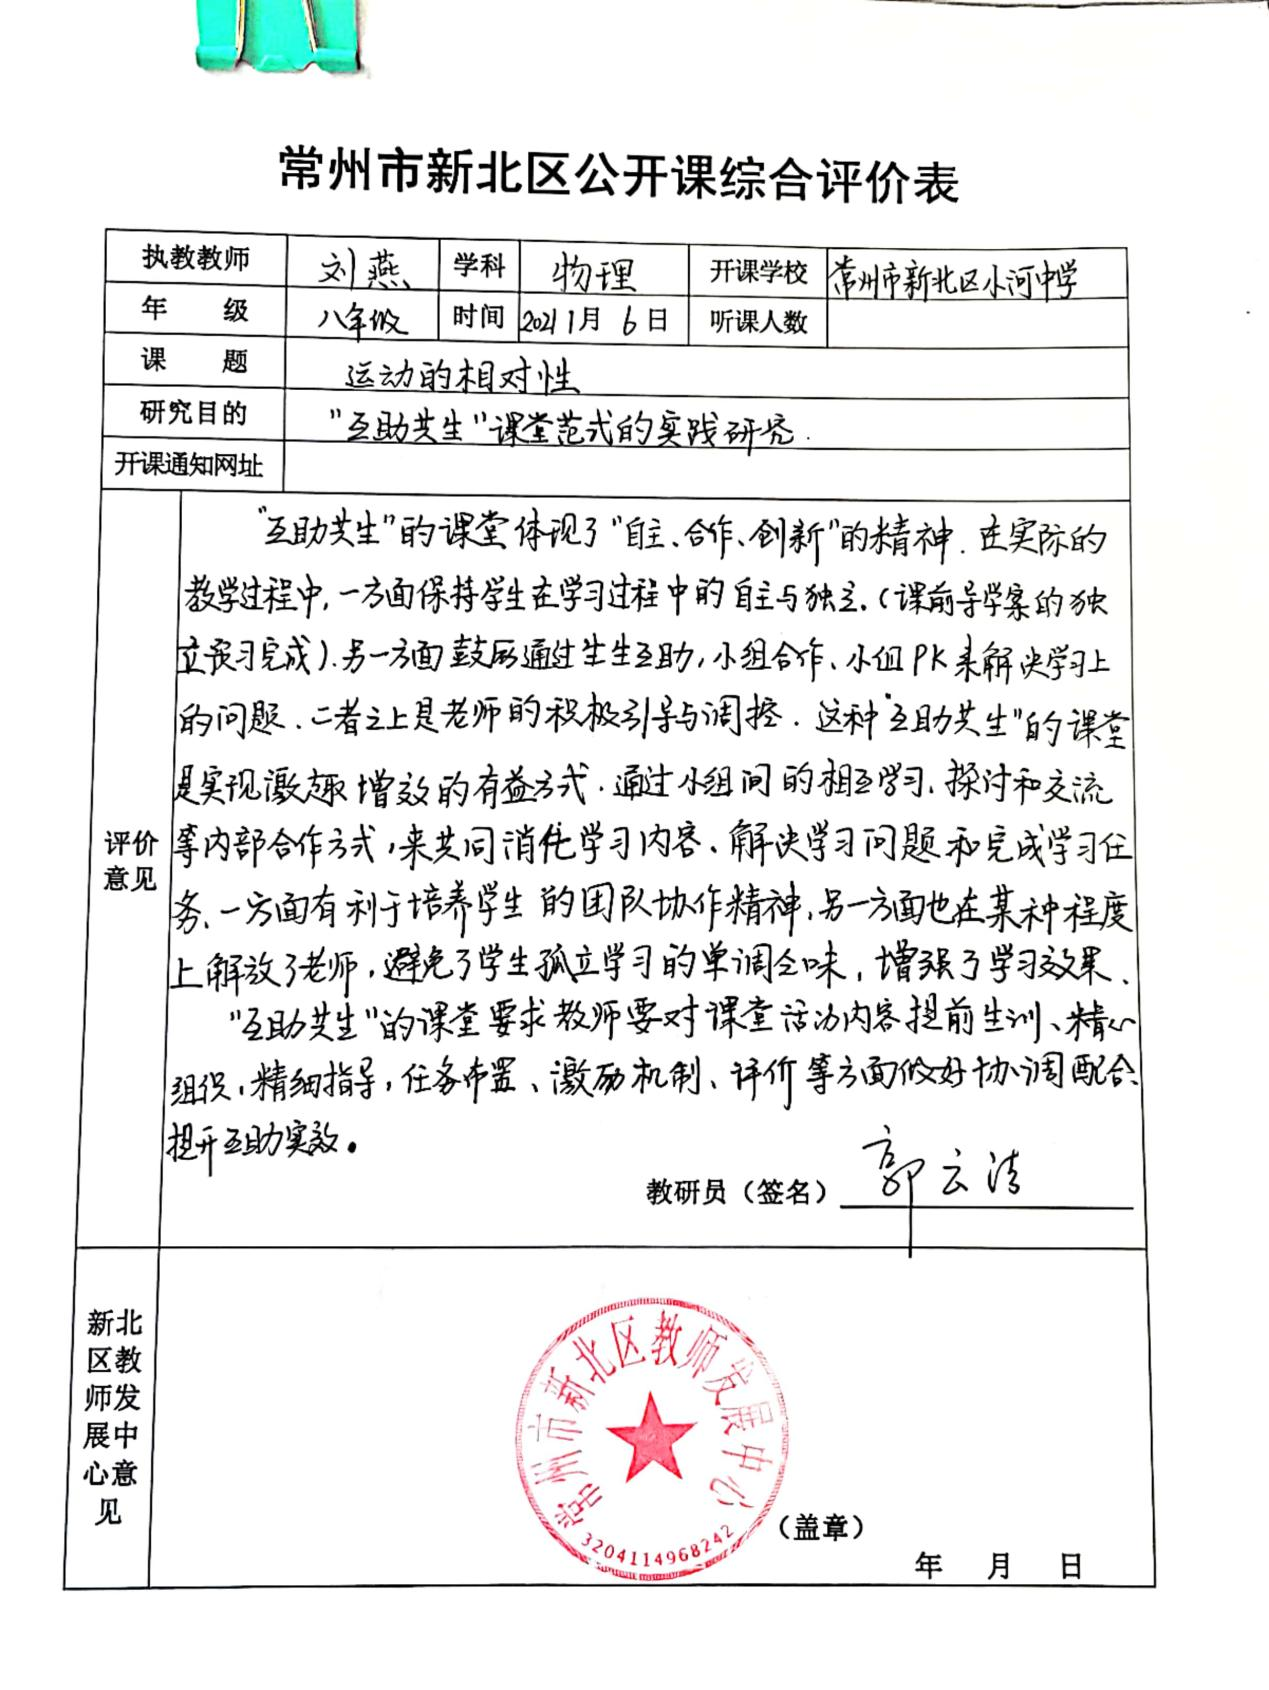 常州市新北区公开课综合评价表
执教教师 刘燕 学科 物理 开课学校 常州市新北区小河中学
年 级 八年级 时间 2021 1月 6日 听课人数
课 题 运动的相对性
研究目的 "互助共生"课堂范式的实践研究.
开课通知网址
"互助共生"的课堂体现了"自主、合作、创新"的精神.在实际的
教学过程中,一方面保持学生在学习过程中的自主与独立.(课前导学案的独
立预习完成).另一方面鼓励通过生生互助,小组合作、小组PK来解决学习上
的问题.二者之上是老师的积极引导与调控.这种"互助共生"的课堂
是实现激趣增效的有益方式.通过小组间的相互学习、探讨和交流
评价意见
等内部合作方式,来共同消化学习内容、解决学习问题和完成学习任
务、一方面有利于培养学生的团队协作精神,另一方面也在某种程度
上解放了老师,避免了学生孤立学习的单调乏味,增强了学习效果、
"互助共生"的课堂要求教师要对课堂活动内容提前生训、精心
组织,精细指导,任务布置、激励机制、评价等方面做好协调配合
提升互助实效。
教研员(签名) 郭云清
新北
区教
师发
展中
心意
见
常州市新北区教师发展中心
3204114968242
(盖章)
年 月 日